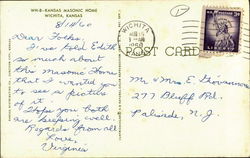 WH-8—KANSAS MASONIC HOME
WICHITA, KANSAS
8/15/60
Dear Folks.
I've told Edith
so much about
the Masonic Home
that I wanted you
to see a picture
of it.
Hope you both
are keeping well.
Regards from all
Love,
Virginia
WICHITA
1960
POST CARD
LIBERTY
Mr & Mrs E
277 Bluff Rd.
Palisade, N.J.